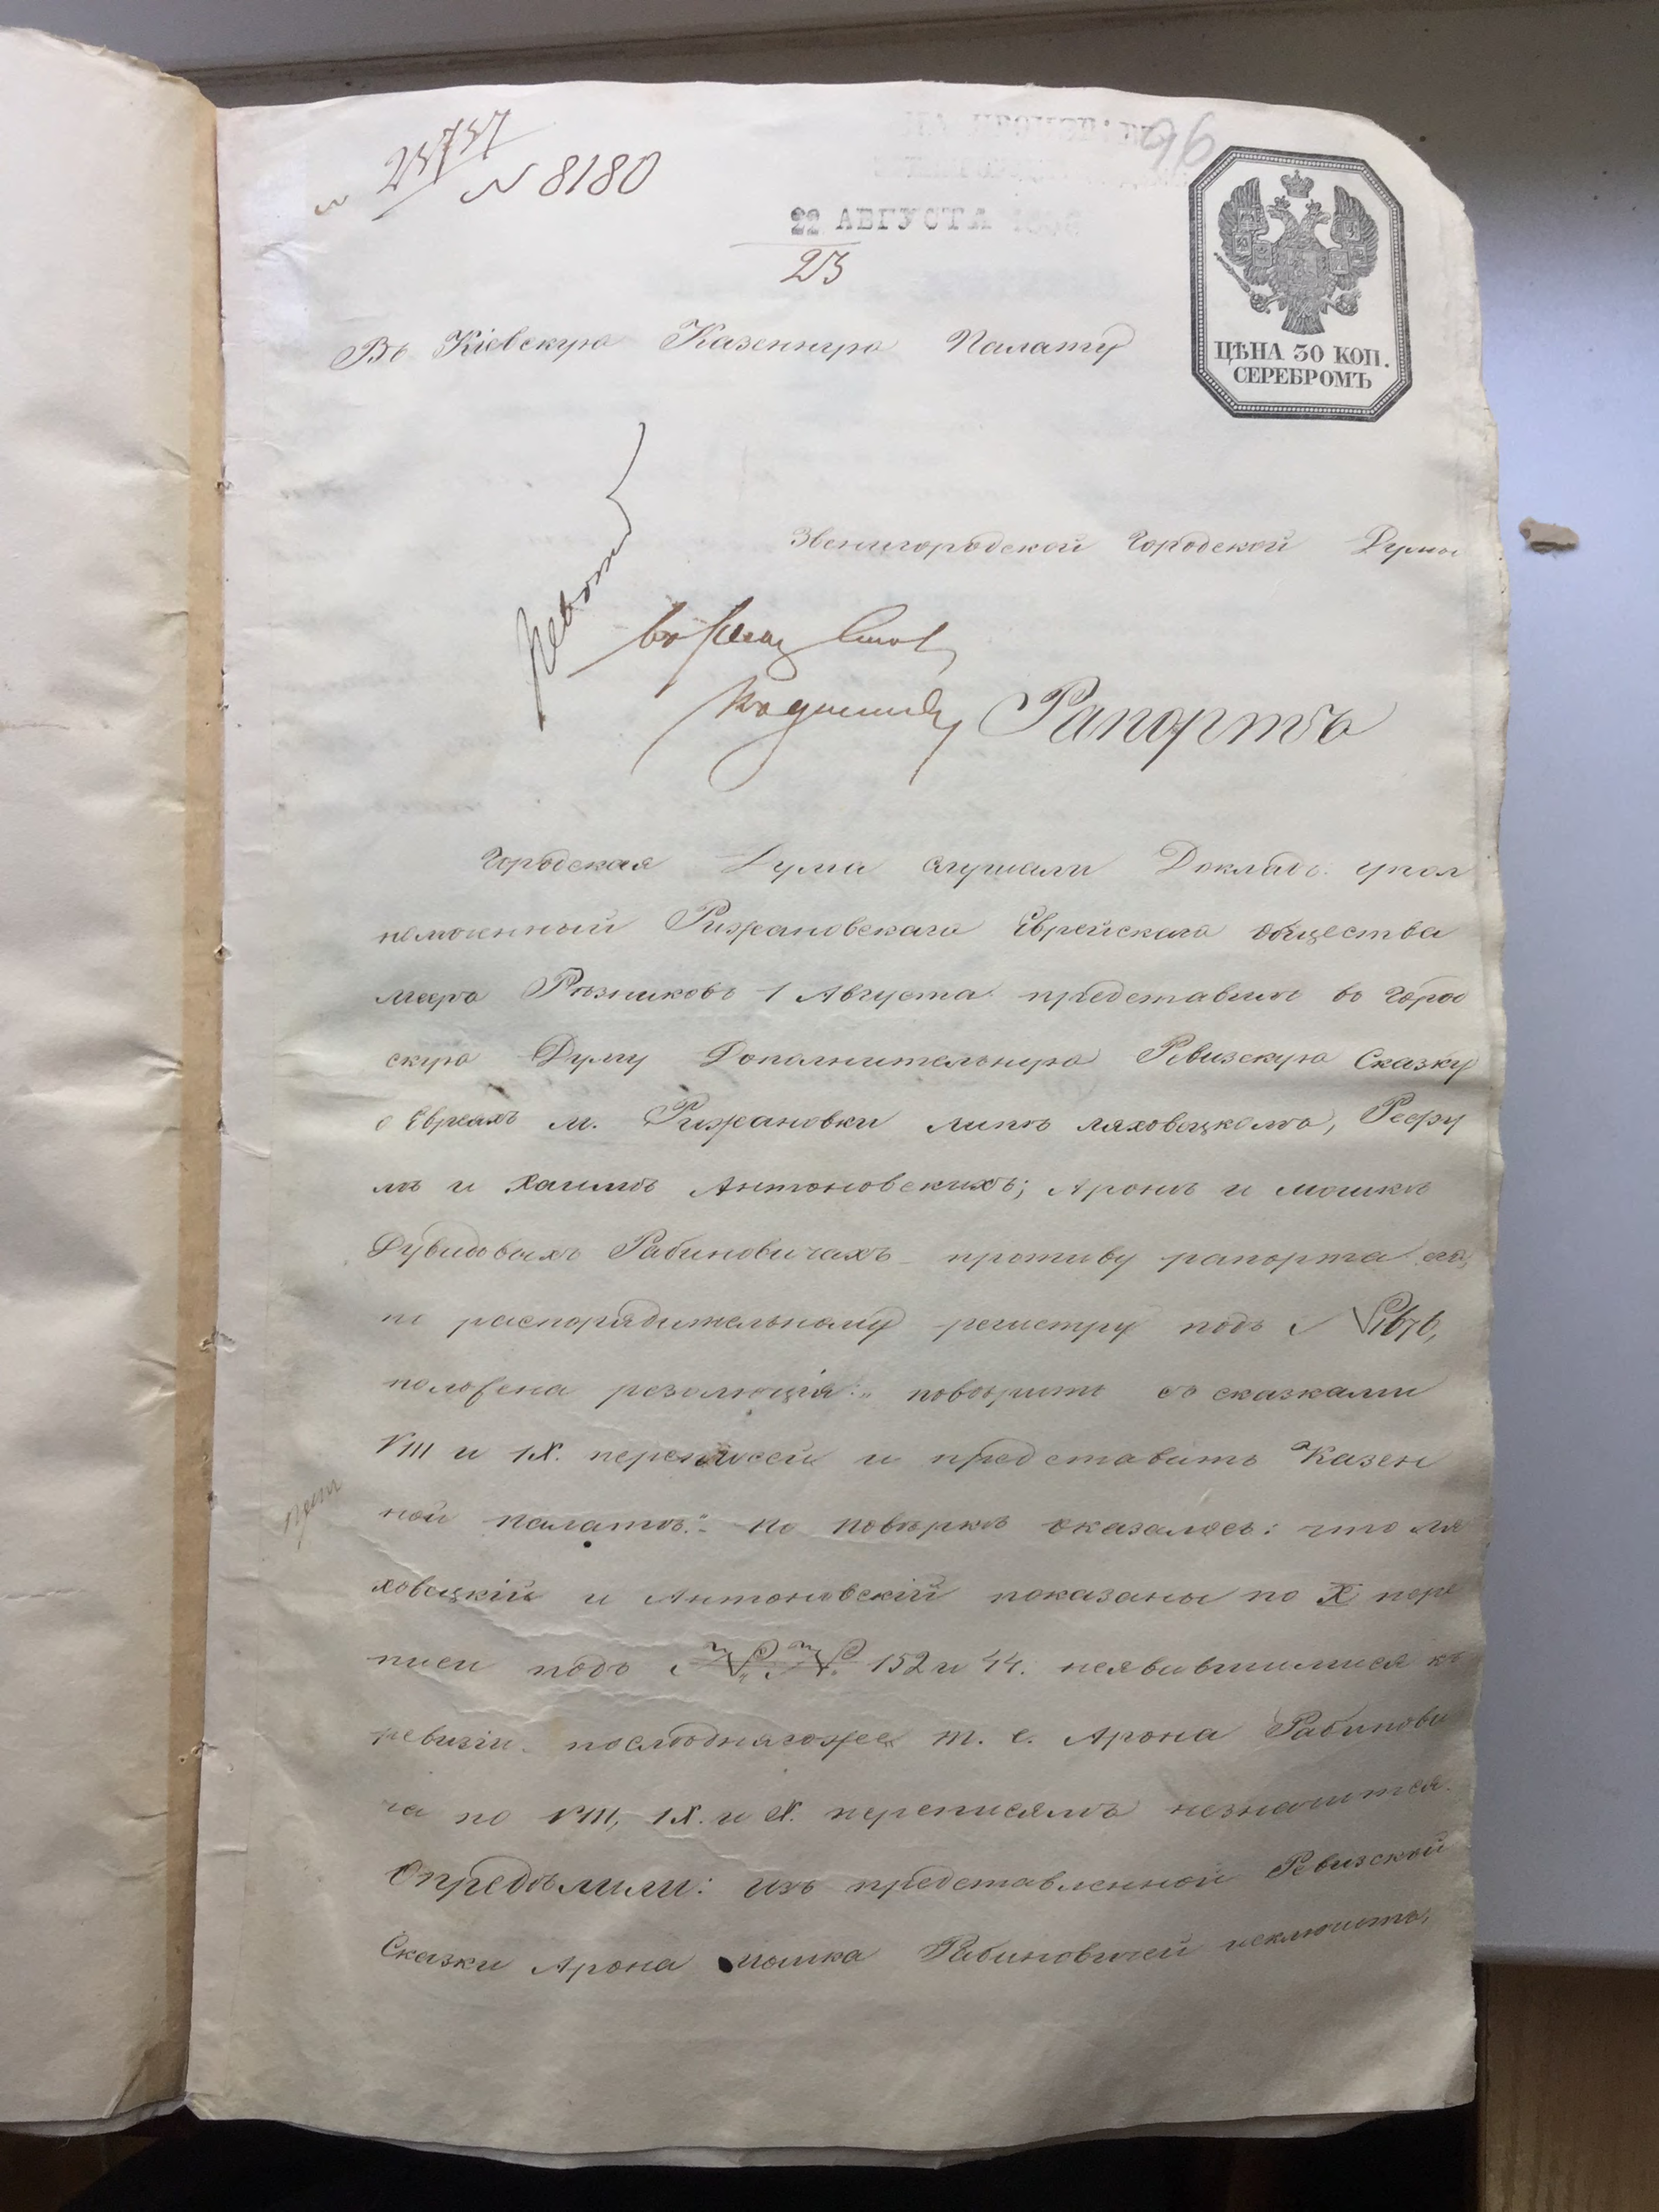 № 8180
96
22 АВГУСТА
23
ЦѢНА 30 КОП.
СЕРЕБРОМЪ
Въ Кіевскую Казенную Палату
Звенигородской Городской Думы
Рапортъ
Городская Дума слушали Докладъ: упол
номоченный Рижановскаго Еврейскаго общества
Мееръ Рѣзниковъ 1 Августа представилъ въ Город
скую Думу Дополнительную Ревизскую Сказку
о Евреяхъ м. Рижановки Липѣ Ляховецкомъ,
и Хаимѣ Антоновскихъ; Аронѣ и Мошкѣ
Дувидовыхъ Рабиновичахъ противу рапорта его,
по распорядительному регистру подъ №
положена резолюція: „повѣрить съ сказками
VIII и IX. переписей и представить Казен
ной палатѣ." По повѣркѣ оказалось: что Ля
ховецкій и Антоновскій показаны по X пере
писи подъ №№ 152 и 44. неявившимися къ
ревизіи. последнягоже т. е. Арона Рабинови
ча по VIII, IX. и X. переписямъ незначится.
Опредѣлили: изъ представленной Ревизской
Сказки Арона Мошка Рабиновичей исключить,